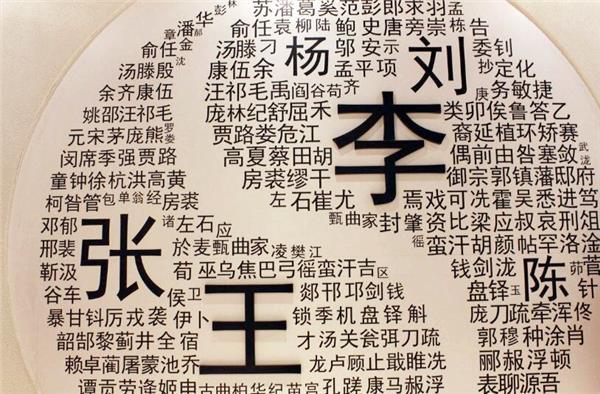 苏潘葛奚范彭郎求羽孟
华彭林
潘郝
章金
俞任袁柳陆鲍史唐旁崇栋告
俞任汤滕刁杨邬安示刘委钊
汤滕殷康伍余孟平项抄定化
余齐康伍汪祁毛禹阎谷苟齐李庚务敏捷
姚邵汪祁毛庞林纪舒屈禾类卯俟鲁答乙
元宋茅庞熊罗娄贾路娄危江裔延植环矫赛
闵席季强贾路高夏蔡田胡偶前由昝塞敛武泷
童钟徐杭洪高黄房裘缪干御宗郭镇藩邸府
柯昝管包单翁经房裘左石崔尤焉戏可冼霍吴悉进笃
邓郁张诸左石应甄曲家封肇资比梁应叔哀刑俎
邢裴於麦甄曲家凌樊江徭汗蛮胡颜帖罗洛淦
靳汲荀巫乌焦巴弓徭蛮汗吉区钱剑泷陈茆菅
谷车侯卫王郯邗邛剑钱盘铎玉针
暴甘钭厉戎袭伊卜锁季机盘铎斛庞刀疏牵浑佟
韶郜黎蓟井全宿才汤关瓮弭刀疏郭穆种涂肖
赖卓蔺屠蒙池乔龙卢顾止戢睢冼郦郝浮顿
谭贡劳逄姬申古曲柏华纪苗宫孔蹉康马赦浮表聊源吾